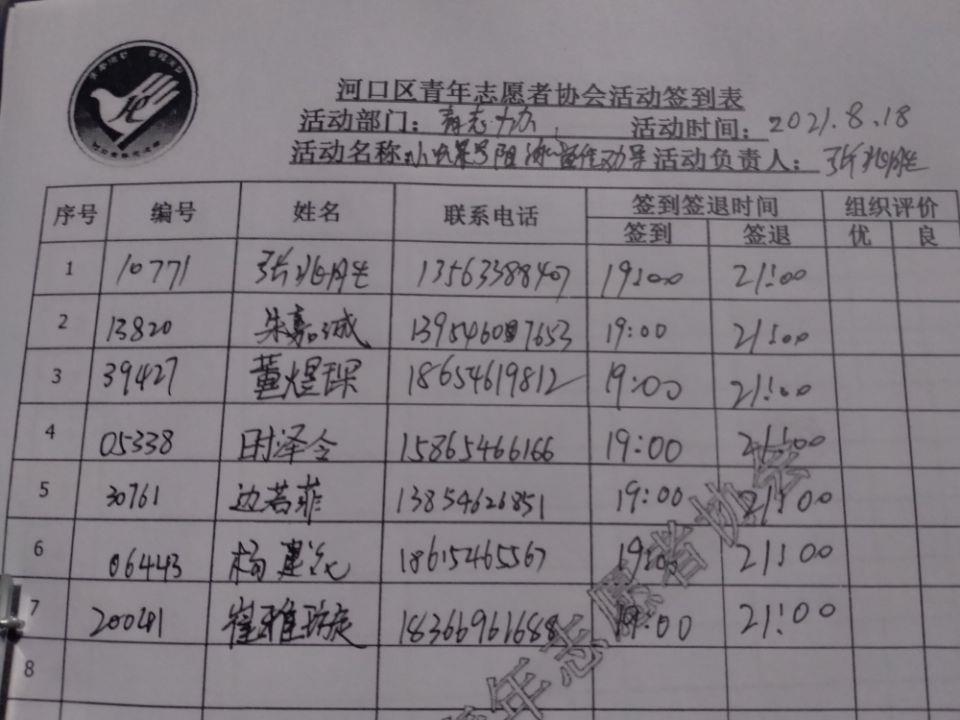 河口区青年志愿者协会活动签到表
活动部门: 青志 活动时间: 2021.8.18
活动名称: 活动负责人: 张兆胜
序号 编号 姓名 联系电话 签到签退时间 组织评价
签到 签退 优 良
1 10771 张兆胜 13563388407 19:00 21:00
2 13820 朱嘉诚 1395460 7653 19:00 21:00
3 39427 董煜琛 18654619812 19:00 21:00
4 05338 时泽令 15865466166 19:00 21:00
5 30761 边若菲 13854626851 19:00 21:00
6 06443 杨建 18615465567 19:00 21:00
7 200401 崔雅璇 18366961688 19:00 21:00
8
青年志愿者协会